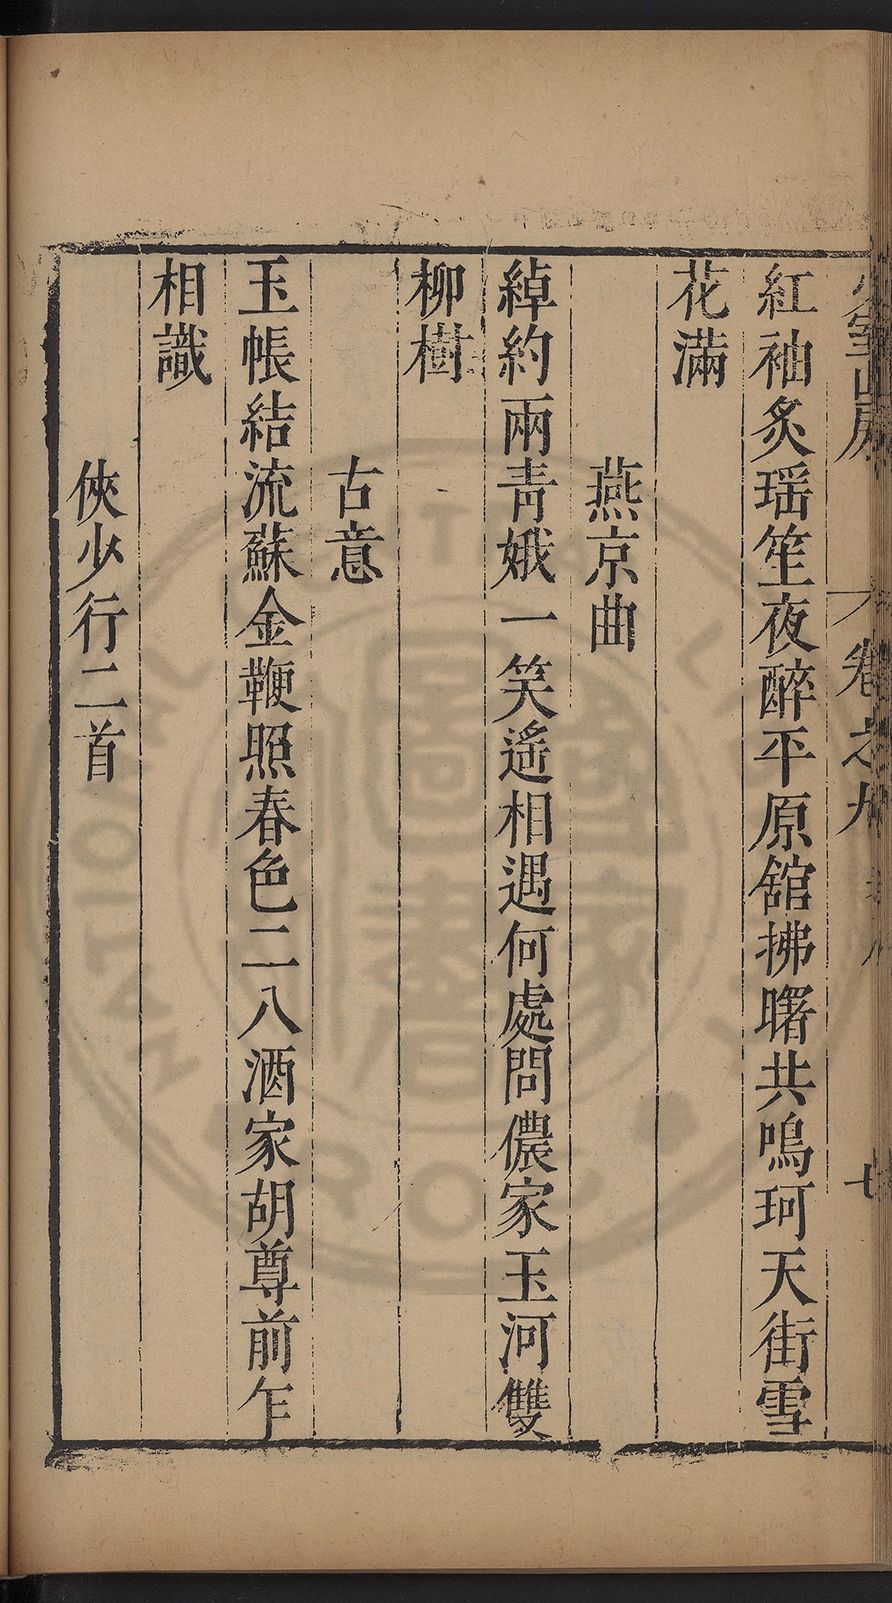 少室山房　卷之九　七
紅袖炙瑶笙夜醉平原舘拂曙共鳴珂天街雪
花滿
燕京曲
綽約兩青娥一笑遙相遇何處問儂家玉河雙
柳樹
古意
玉帳結流蘇金鞭照春色二八酒家胡尊前乍
相識
俠少行二首